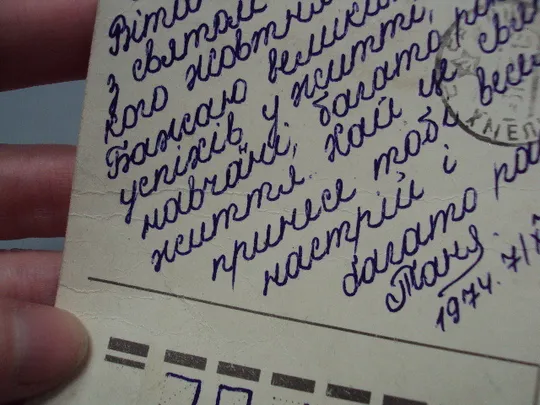 Віта
з святом
кого жовтня
Бажаю великих
успіхів у житті,
навчані, багато
життя. Хай це свя
принесе тобі весе
настрій і
багато ра
Таня.
1974. 7/X